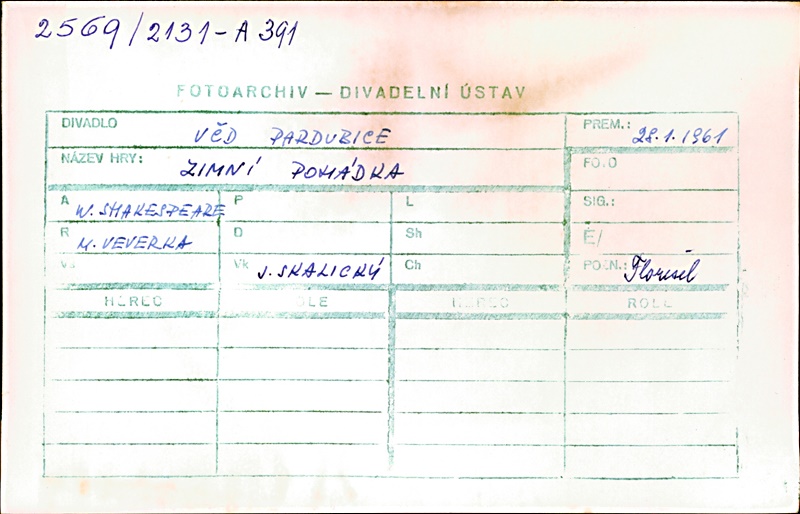 2569/2131-A 391
FOTOARCHIV — DIVADELNÍ ÚSTAV
DIVADLO VČD PARDUBICE PREM.: 28.1.1961
NÁZEV HRY: ZIMNÍ POHÁDKA FOTO
A W. SHAKESPEARE P L SIG.:
R M. VEVERKA D Sh É/
Vk J. SKALICKÝ Ch POZN.: Florisel
HEREC ROLE HEREC ROLE